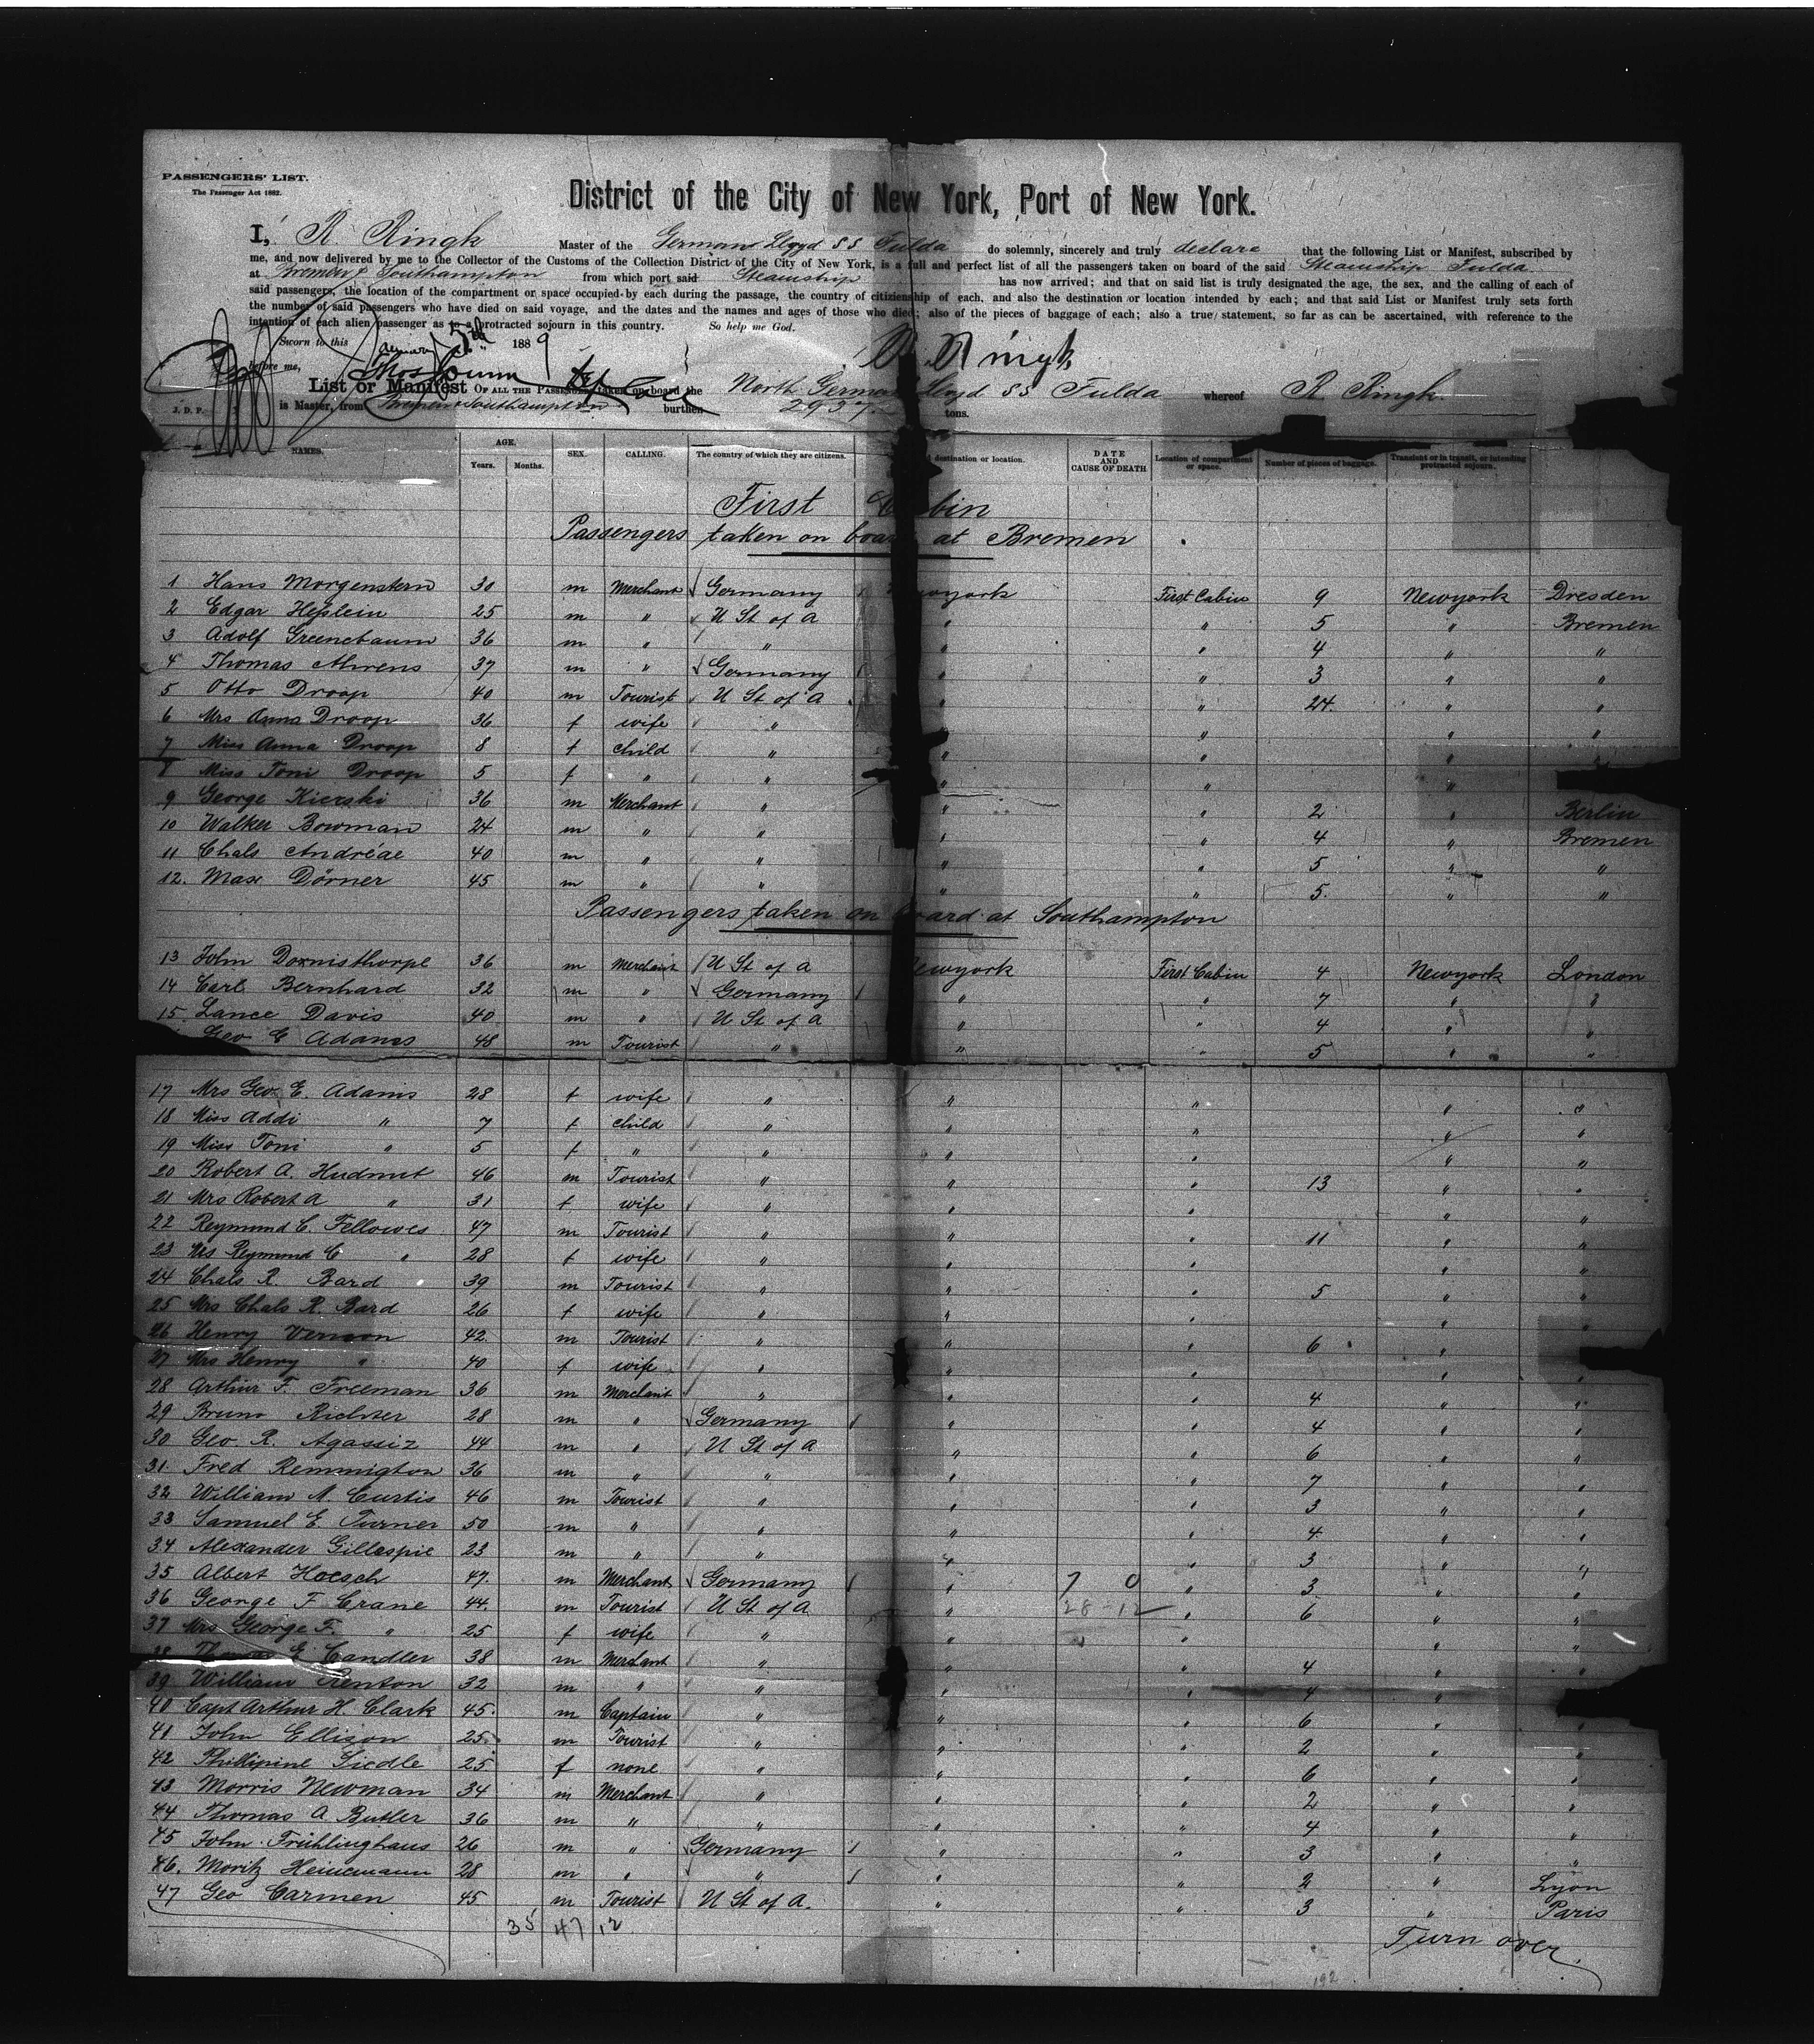 PASSENGERS' LIST.
The Passenger Act 1882.
District of the City of New York, Port of New York.
I, R. Ringk Master of the German Lloyd SS Fulda do solemnly, sincerely and truly declare that the following List or Manifest, subscribed by
me, and now delivered by me to the Collector of the Customs of the Collection District of the City of New York, is a full and perfect list of all the passengers taken on board of the said Steamship Fulda
at Bremen & Southampton from which port said Steamship has now arrived; and that on said list is truly designated the age, the sex, and the calling of each of
said passengers, the location of the compartment or space occupied by each during the passage, the country of citizenship of each, and also the destination or location intended by each; and that said List or Manifest truly sets forth
the number of said passengers who have died on said voyage, and the dates and the names and ages of those who died; also of the pieces of baggage of each; also a true statement, so far as can be ascertained, with reference to the
intention of each alien passenger as to a protracted sojourn in this country. So help me God.
Sworn to this 5th 1889
before me, R. Ringk
List or Manifest OF ALL THE PASSENGERS taken on board the North German Lloyd SS Fulda whereof R Ringk
J. D. P. is Master, from Bremen & Southampton burthen 2937 tons.
NAMES. AGE. Years. Months. SEX. CALLING. The country of which they are citizens. destination or location. DATE AND CAUSE OF DEATH Location of compartment or space. Number of pieces of baggage. Transient or in transit, or intending protracted sojourn.
First Cabin
Passengers taken on board at Bremen
1 Hans Morgenstern 30 m Merchant Germany Newyork First Cabin 9 Newyork Dresden
2 Edgar Heßlein 25 m " U St of A " " 5 " Bremen
3 Adolf Greenebaum 36 m " " " " 4 " "
4 Thomas Ahrens 37 m " Germany " " 3 " "
5 Otto Droop 40 m Tourist U St of A " " 24. " "
6 Mrs Anna Droop 36 f wife " " " " "
7 Miss Anna Droop 8 f child " " " "
8 Miss Toni Droop 5 f " " " " "
9 George Kierski 36 m Merchant " " " 2 " Berlin
10 Walker Bowman 24 m " " " " 4 " Bremen
11 Chals Andréae 40 m " " " " 5 " "
12. Max Dörner 45 m " " " " 5. " "
Passengers taken on board at Southampton
13 John Dornisthorpe 36 m Merchant U St of A Newyork First Cabin 4 Newyork London
14 Carl Bernhard 32 m " Germany " " 7 " "
15. Lance Davis 40 m " U St of A " " 4 " "
Geo E Adams 48 m Tourist " " " 5 " "
17 Mrs Geo E. Adams 28 f wife " " " " "
18 Miss Addi " 7 f child " " " " "
19 Miss Toni " 5 f " " " " " "
20 Robert A. Hudnut 46 m Tourist " " " 13 " "
21 Mrs Robert A " 31 f wife " " " " "
22 Reymund C. Fellowes 47 m Tourist " " " 11 " "
23 Mrs Reymund C " 28 f wife " " " " "
24 Chals R. Bard 39 m Tourist " " " 5 " "
25 Mrs Chals R. Bard 26 f wife " " " " "
26 Henry Vernon 42. m Tourist " " " 6 "
27 Mrs Henry " 40 f wife " " " " "
28 Arthur F. Freeman 36 m Merchant " " " 4 " "
29 Bruno Richter 28 m " Germany " " 4 " "
30 Geo. R. Agassiz 44 m " U St of A " " 6 " "
31. Fred Remmigton 36 m " " " " 7 " "
32 William A. Curtis 46 m Tourist " " " 3 " "
33 Samuel E. Turner 50 m " " " " 4. " "
34 Alexander Gillespie 23 m " " " " 3 " "
35 Albert Hoesch 47. m Merchant Germany " 7 0 " 3 " "
36 George F Crane 44. m Tourist U St of A. " 28-12 " 6 " "
37 Mrs George F. " 25 f wife " " " " "
E Candler 38 m Merchant " " " 4 " "
39 William Renton 32 m " " " " 4 "
40 Capt Arthur H. Clark 45. m Captain " " " 6 " "
41 John Ellison 25. m Tourist " " " 2 " "
42 Phillipine Siedle 25 f none " " " 6 " "
43 Morris Newman 34 m Merchant " " " 2 " "
44 Thomas A Butler 36 m " " " " 4 " "
45 John Frühlinghaus 26 m " Germany " " 3 " "
46. Moritz Heinemann 28 m " " " " 2 " Lyon
47 Geo Carmen 45 m Tourist U St of A. " " 3 " Paris
35 47 12
Turn over.
192